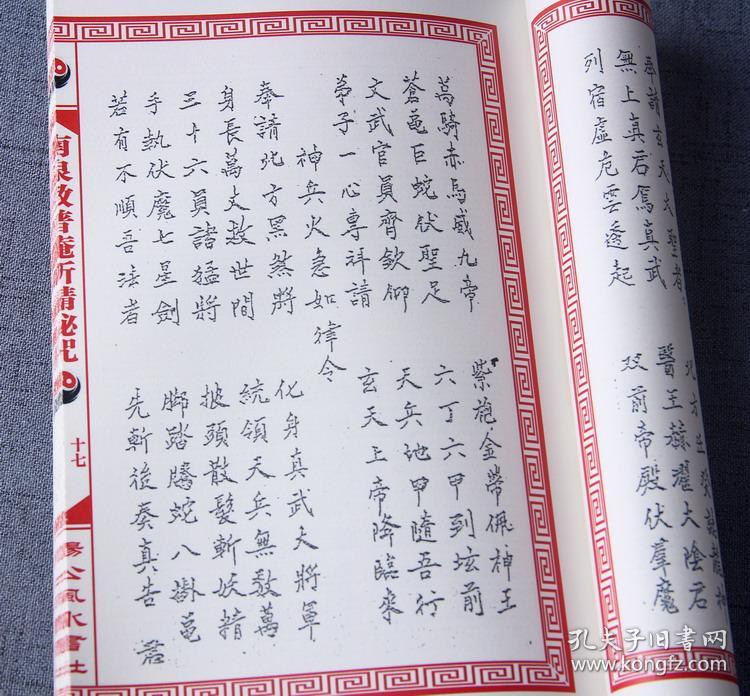 奉請玄天大聖者 北方壬癸
無上真君為真武 醫王赫濯大陰君
列宿虛危雲透起 双前帝殿伏羣魔
萬騎赤烏威九帝 紫炮金帶佩神王
蒼龜巨蛇伏聖足 六丁六甲到坛前
文武官員齊欽仰 天兵地甲隨吾行
弟子一心專拜請 玄天上帝降臨來
神兵火急如律令
奉請北方黑煞將 化身真武大將軍
身長萬丈救世間 統領天兵無数萬
三十六員諸猛將 披頭散髮斬妖精
手執伏魔七星劍 脚踏騰蛇八掛龜
若有不順吾法者 先斬後奏真吉 君
南泉教普庵祈請秘咒
十七
楊公風水書社
孔夫子旧书网
www.kongfz.com